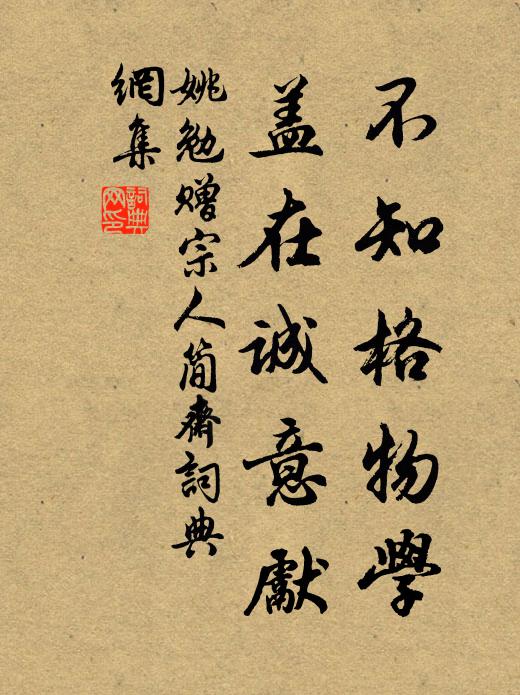 不知格物學
蓋在誠意獻
姚勉贈宗人簡齋詞典
網集
詞典網印